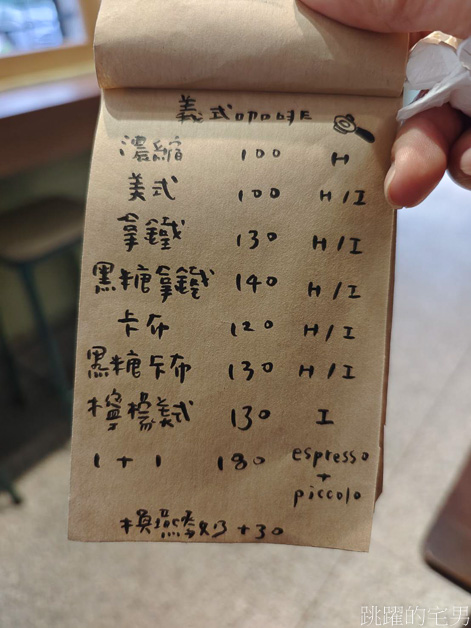 義式咖啡
濃縮 100 H
美式 100 H/I
拿鐵 130 H/I
黑糖拿鐵 140 H/I
卡布 120 H/I
黑糖卡布 130 H/I
檸檬美式 130 I
1+1 180 espresso
+
piccolo
換燕麥奶+30
跳躍的宅男